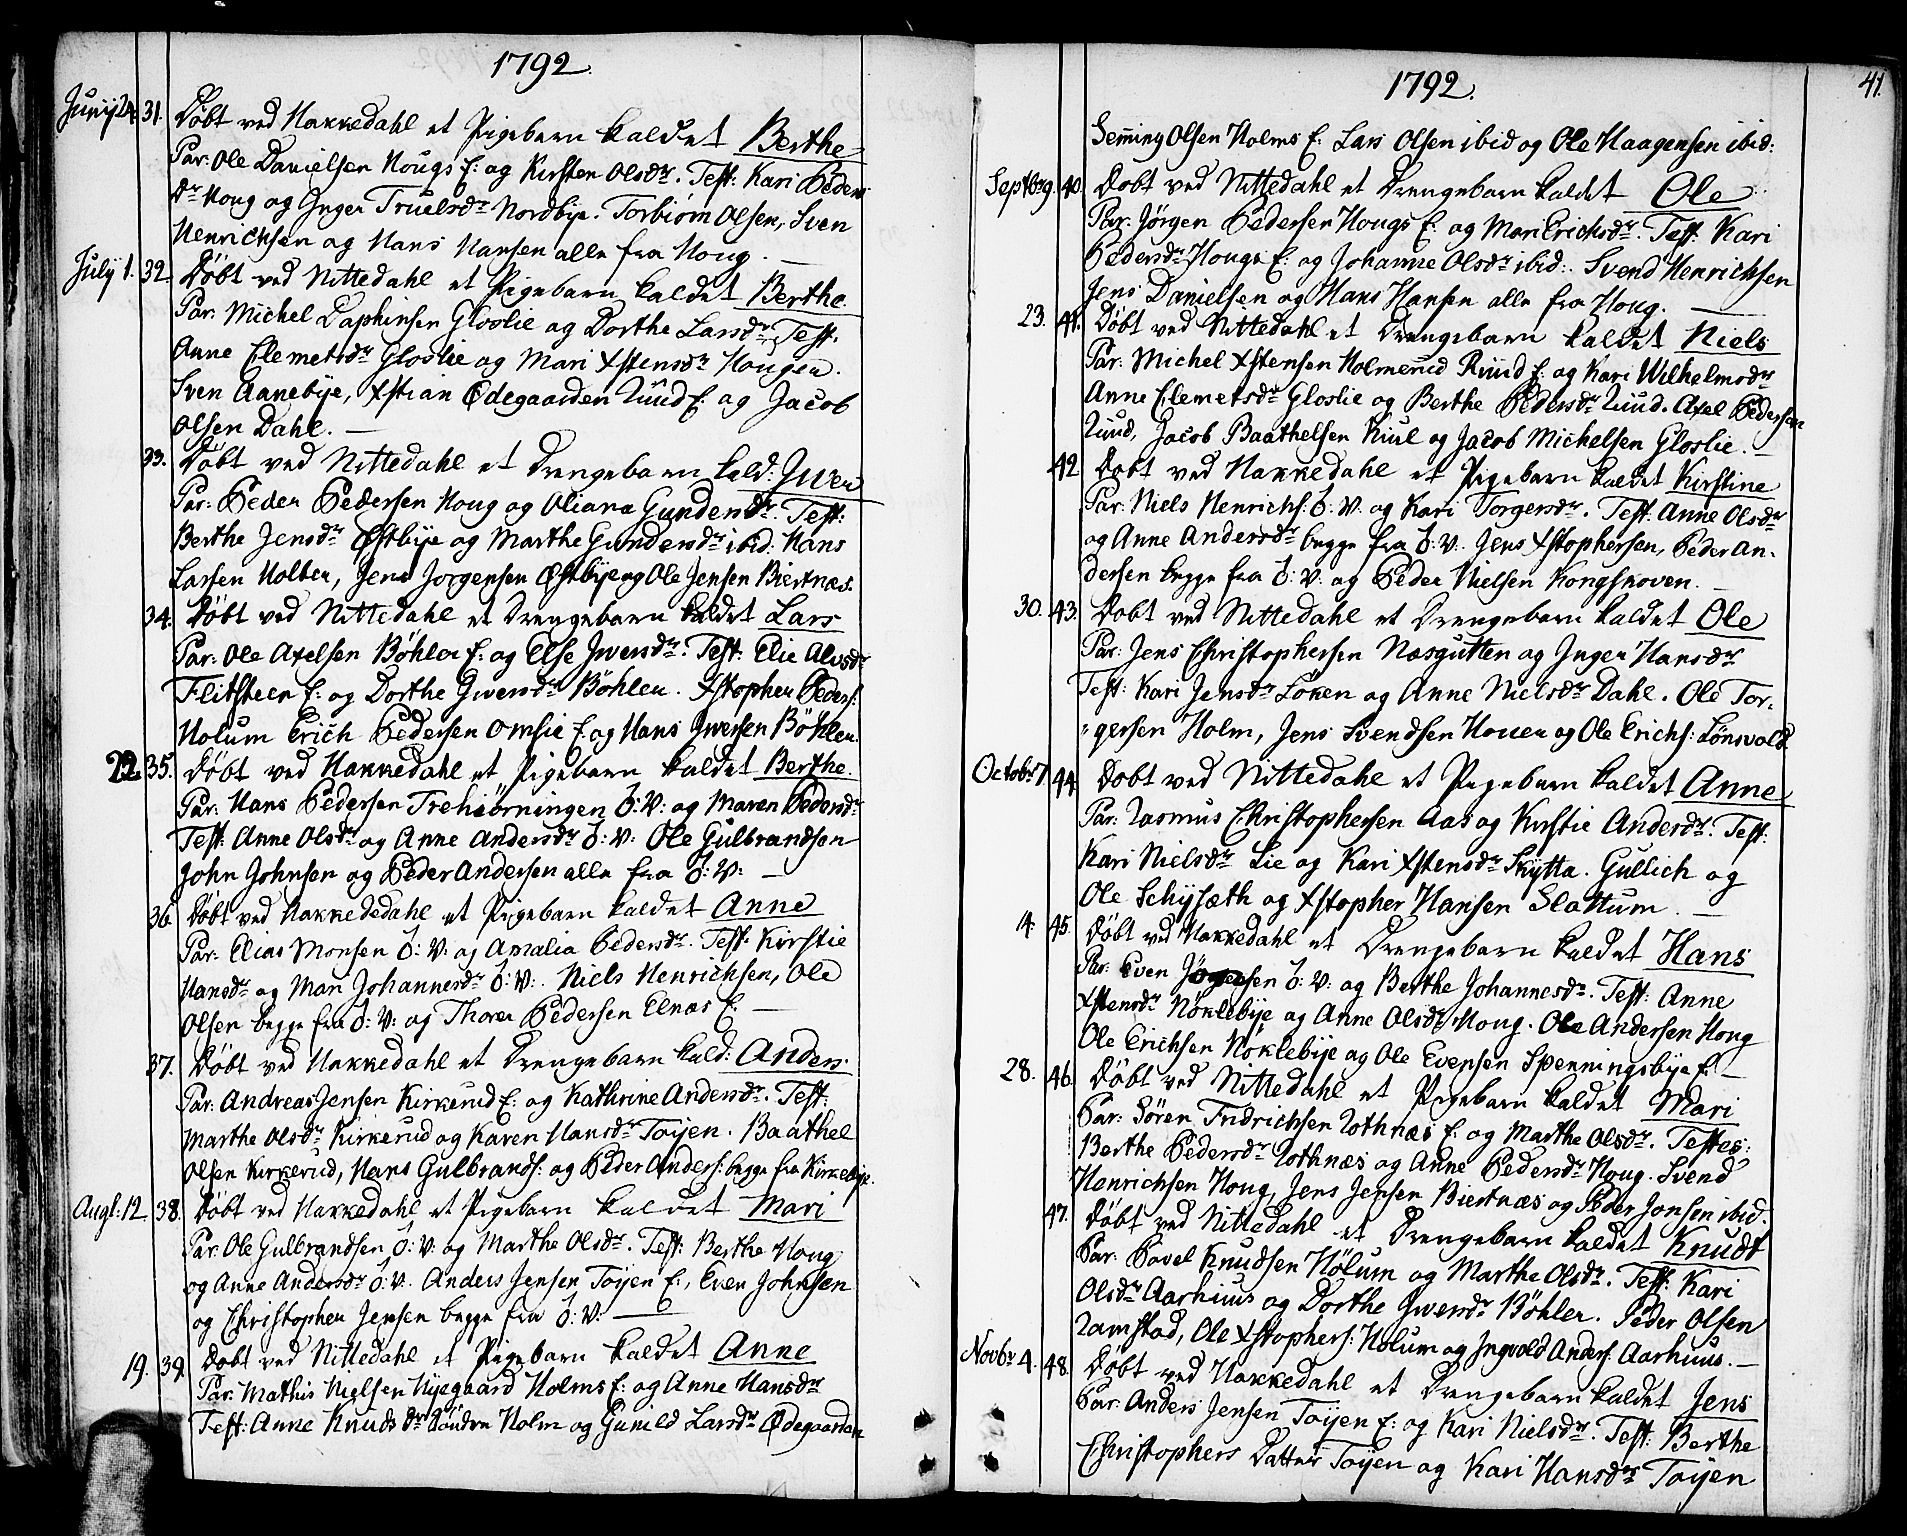 1792.
Junij 24. 31. Döbt ved Hakkedahl et Pigebarn kaldet Berthe
Par: Ole Danielsen Hougs E: og Kirsten Olsdr. Test: Kari Peders
Dr Houg og Inger Truelsdr Nordbye. Torbiörn Olsen, Sven
Henrichsen og Hans Hansen alle fra Houg. —
Julij 1. 32. Döbt ved Nittedahl et Pigebarn kaldet Berthe.
Par: Michel Daphinsen Gloslie og Dorthe Larsdr. Test:
Anne Clemetsdr Gloslie og Mari Xstensdr Hougen.
Sven Aanebye, Xstian Ödegaarden Ruud E: og Jacob
Olsen Dahl. —
33. Döbt ved Nittedahl et Drengebarn kald: Iver
Par: Peder Pedersen Houg og Oliana Gundersdr. Test:
Berthe Jensdr Östbye og Marthe Gundersdr ibid. Hans
Larsen Holter, Jens Jorgensen Östbye og Ole Jensen Biertnæs.
34. Döbt ved Nittedahl et Drengebarn kaldet Lars
Par: Ole Axelsen Böhler E: og Else Iversdr. Test: Elie Alvsdr
Flitsteen E: og Dorthe Iversdr Böhler. Xstopher Peders:
Holum Erich Pedersen Omsie E: og Hans Iversen Böhler.
22. 35. Döbt ved Hakkedahl et Pigebarn kaldet Berthe.
Par: Hans Pedersen Trehiörningen J: V: og Maren Pedersdr
Test: Anne Olsdr og Anne Andersdr J: V: Ole Gulbrandsen
John Johnsen og Peder Andersen alle fra J: V: —
36. Döbt ved Hakkededahl et Pigebarn kaldet Anne
Par: Elias Monsen J: V: og Amalia Pedersdr. Test: Kirstie
Hansdr og Mari Johannesdr J: V:. Niels Henrichsen, Ole
Olsen begge fra J: V: og Thorer Pedersen Elnæs E. —
37. Döbt ved Hakkedahl et Drengebarn kald: Anders
Par: Andreas Jensen Kirkerud E: og Kathrine Andersdr. Test:
Marthe Olsdr Kirkerud og Karen Hansdr Toijen. Baathel
Olsen Kirkerud, Hans Gulbrands: og Peder Anders: begge fra Kirkebye.
Augt: 12. 38. Döbt ved Hakkedahl et Pigebarn kaldet Mari
Par: Ole Gulbrandsen J: V: og Marthe Olsdr. Test: Berthe Houg
og Anne Andersdr J: V. Anders Jensen Toijen E:, Even Johnsen
og Christopher Jensen begge fra J: V: —
19. 39. Dobt ved Nittedahl et Pigebarn kaldet Anne
Par: Mathis Nielsen Nyegaard Holms E: og Anne Hansdr
Test: Anne Knudsdr Söndre Holm og Gunild Larsdr Ödegaarden
1792.
41.
Semming Olsen Holms E: Lars Olsen ibid og Ole Haagensen ibid:
Septbr 9. 40. Dobt ved Nittedahl et Drengebarn kaldet Ole
Par: Jörgen Pedersen Hougs E: og Mari Erichsdr. Test: Kari
Pedersdr Houge E: og Johanne Olsdr ibid:. Svend Henrichsen
Jens Danielsen og Hans Hansen alle fra Houg. —
23. 41. Döbt ved Nittedahl et Drengebarn kaldet Niels
Par: Michel Xstensen Holmerud Ruud E: og Kari Wilhelmsdr
Anne Clemetsdr Gloslie og Berthe Pedersdr Ruud. Axel Pedersen
Ruud, Jacob Baathelsen Kiul og Jacob Michelsen Gloslie. —
42 Dobt ved Hakkedahl et Pigebarn kaldet Kirstine
Par: Niels Henrichs: J: V: og Kari Torgersdr. Test: Anne Olsdr
og Anne Andersdr begge fra J: V:. Jens Xstophersen, Peder An-
dersen begge fra J: V: og Peder Nielsen Kongskoven. —
30. 43. Dobt ved Nittedahl et Drengebarn kaldet Ole
Par: Jens Christophersen Næsgutten og Inger Hansdr
Test: Kari Jensdr Löken og Anne Nielsdr Dahl. Ole Tor-
"gersen Holm, Jens Svendsen Houen og Ole Erichs: Lönsvold.
Octobr 7. 44 Dobt ved Nittedahl et Pigebarn kaldet Anne
Par: Rasmus Christophersen Aas og Kirstie Andersdr. Test:
Kari Nielsdr Lie og Kari Xstensdr Skytta. Gullich og
Ole Schysæth og Xstopher Hansen Slattum. —
14. 45. Döbt ved Hakkedahl et Drengebarn kaldet Hans
Par: Even J: V: og Berthe Johannesdr. Test: Anne
Xstensdr Nöklebye og Anne Olsdr Houg. Ole Andersen Houg
Ole Erichsen Nöklebye og Ole Evensen Spenningsbye E. —
28. 46. Döbt ved Nittedahl et Pigebarn kaldet Mari
Par: Sören Fridrichsen Rothnæs E: og Marthe Olsdr. Testes:
Berthe Pedersdr Rothnæs og Anne Pedersdr Houg. Svend
Henrichsen Houg, Jens Jensen Biertnæs og Peder Jensen ibid.
47. Döbt ved Nittedahl et Drengebarn kaldet Knudt
Par: Povel Knudsen Hölum og Marthe Olsdr. Test: Kari
Olsdr Aarhuus og Dorthe Iversdr Böhler. Peder Olsen
Ramstad, Ole Xstophers: Holum og Ingvold Anders: Aarhuus. —
Novbr 4. 48. Döbt ved Hakkedahl et Drengebarn kaldet Jens
Par: Anders Jensen Toijen E: og Kari Nielsdr. Test: Berthe
Christophers Datter Toijen og Kari Hansdr Toijen